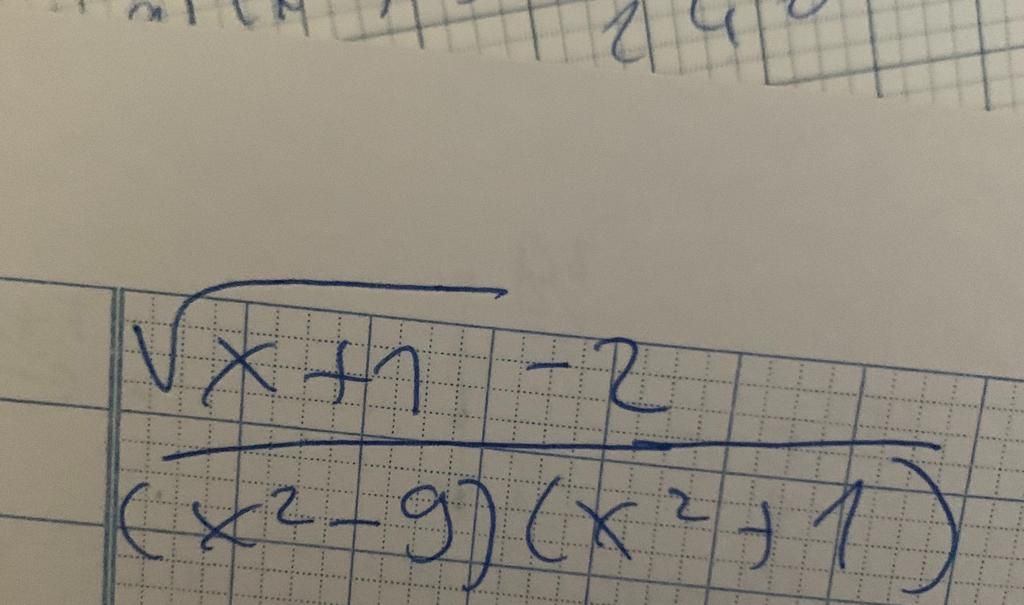 √(x+1) - 2
(x² - 9)(x² + 1)